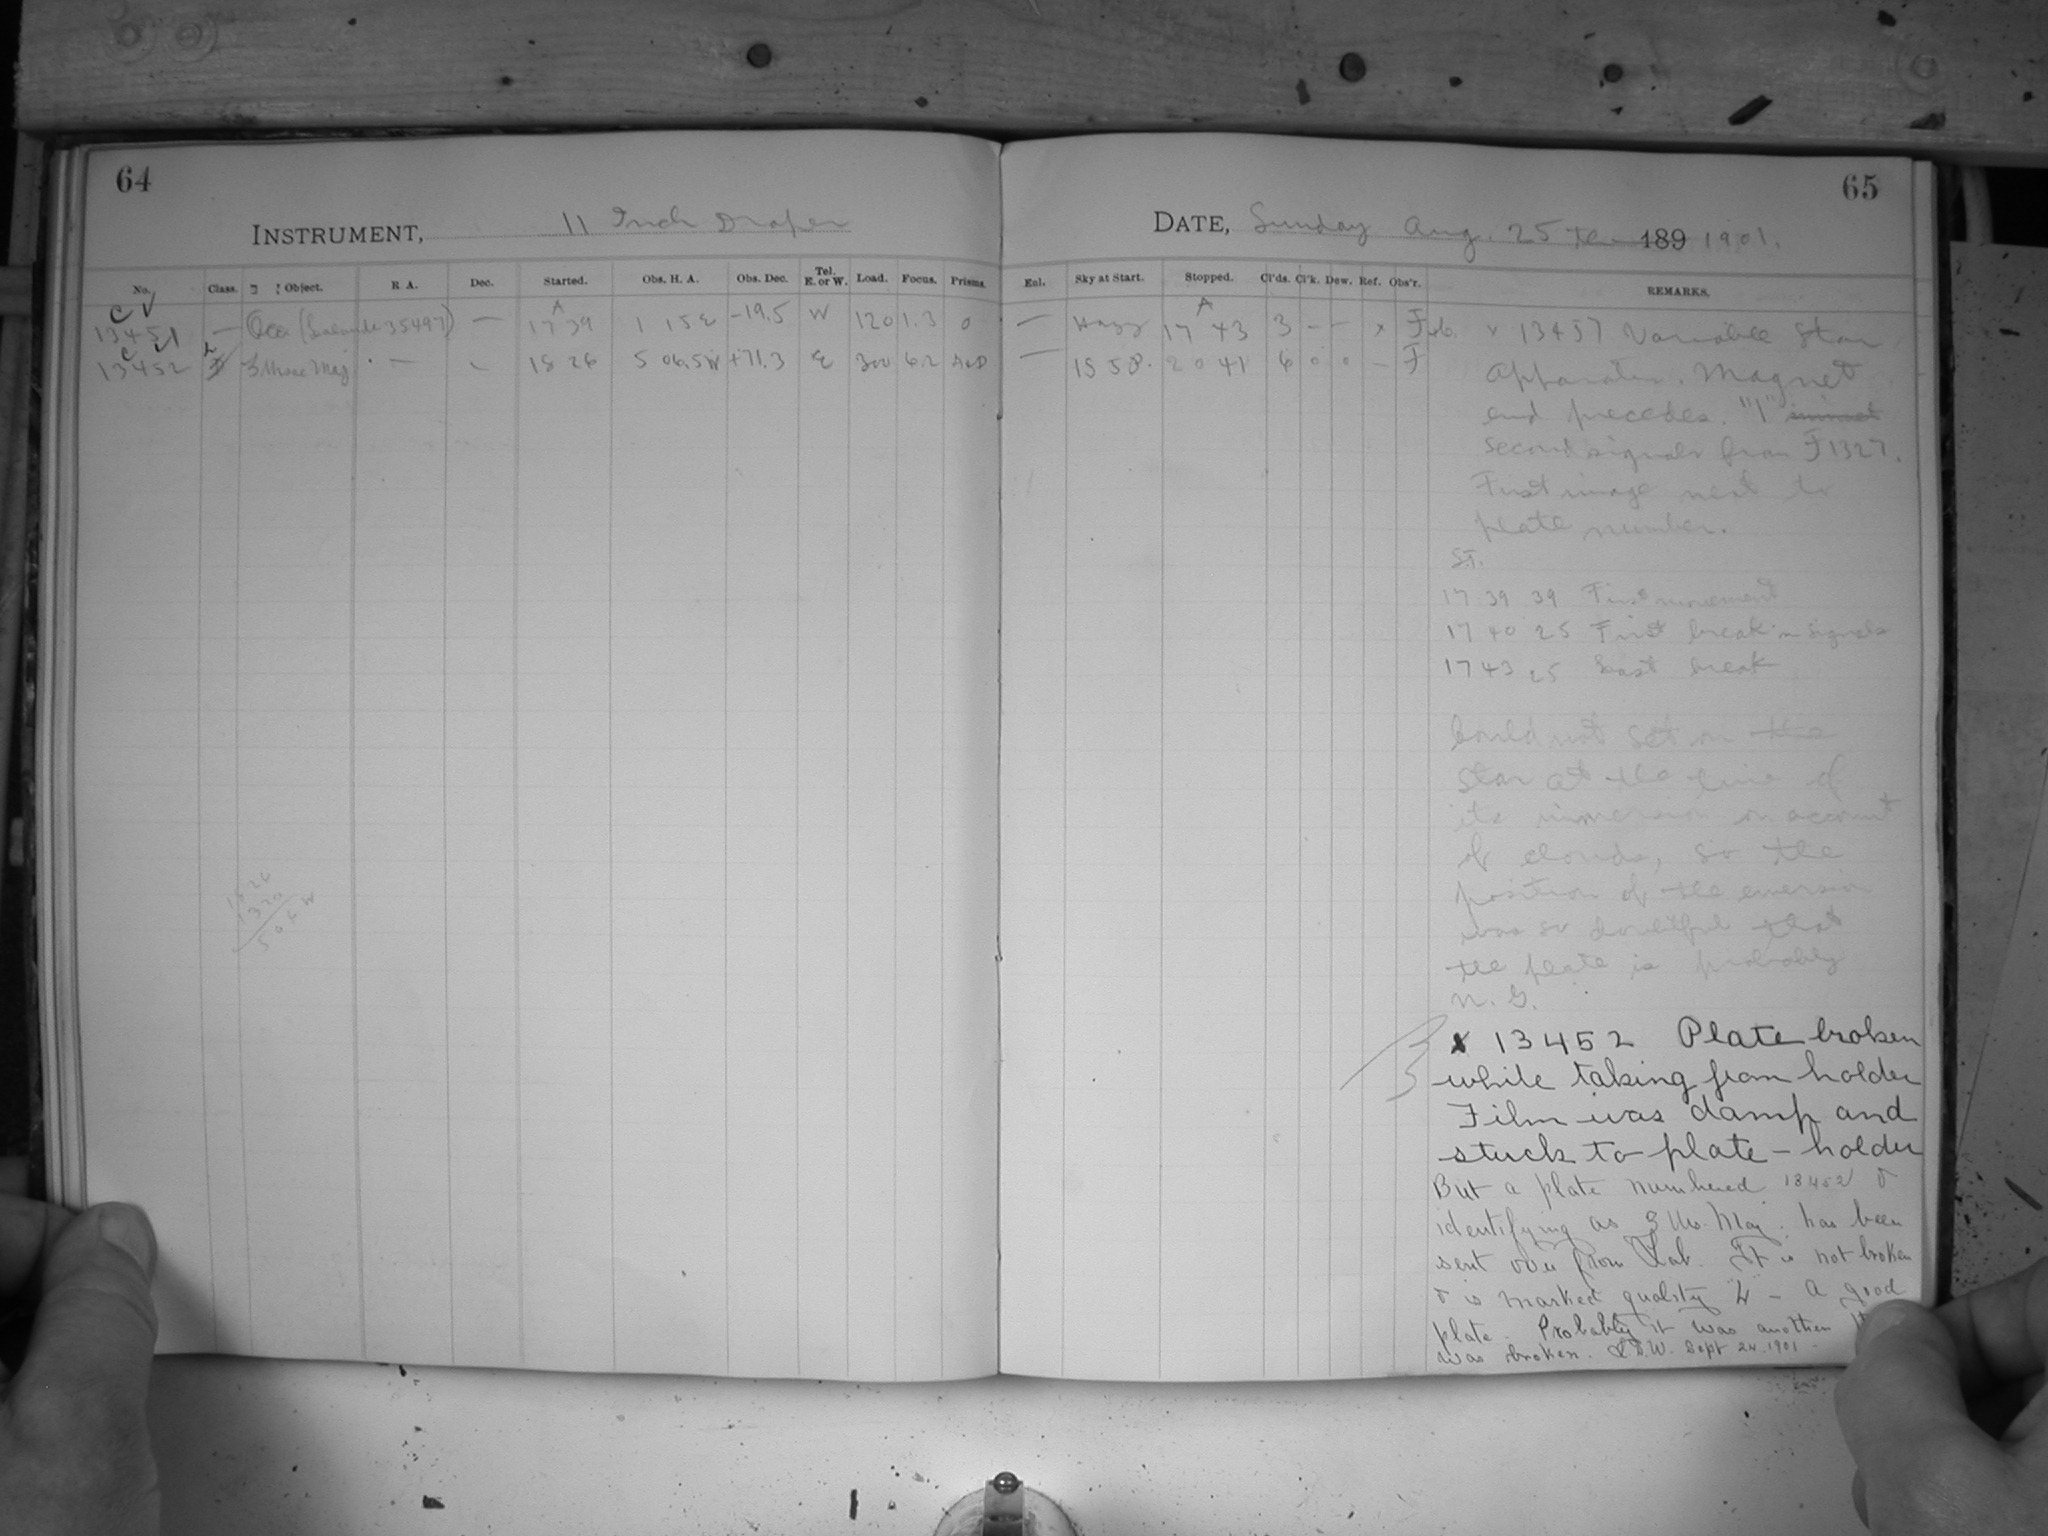 64
65
INSTRUMENT, 11 Inch Draper
DATE, Sunday Aug. 25 189 1901.
No. Class. Object. R. A. Dec. Started. Obs. H. A. Obs. Dec. Tel. E. or W. Load. Focus. Prisms.
Enl. Sky at Start. Stopped. Cl'ds. Cl'k. Dew. Ref. Obs'r. REMARKS.
13451 — Occ (Lalande 35497) — 17 39 1 15 E -19.5 W 120 1.3 0
— Hazy 17 43 3 — — x F
13452 — 18 26 5 06.5W +71.3 E 300 6.2
— 18 58. 20 41 6 0 0 — F
Variable Star
Apparatus. Magnet
end precedes. "1"
second signals from F1327.
First image next to
plate number.
S.T.
17 39 39 First movement
17 40 25 First break in signals
17 43 25 Last break
Could not set on the
star at the time of
its immersion on account
of clouds, so the
position of the emersion
was so doubtful that
the plate is probably
N. G.
1826
1320
506 W
x 13452 Plate broken
while taking from holder
Film was damp and
stuck to plate - holder
But a plate numbered 13452 &
identifying as 3 Urs. Maj. has been
sent over from Lab. It is not broken
& is marked quality 4 - A good
plate. Probably it was another
was broken. L.D.W. Sept 24, 1901 -